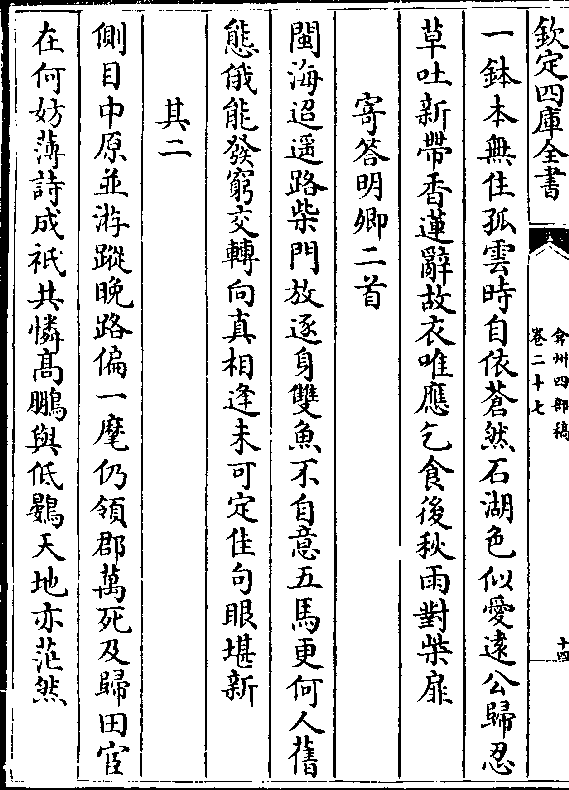 欽定四庫全書
弇州四部稿
卷二十七
十四
一鉢本無住孤雲時自依蒼然石湖色似愛遠公歸忍
草吐新帶香蓮辭故衣唯應乞食後秋雨對柴扉
寄答明卿二首
閩海迢遥路柴門放逐身雙魚不自意五馬更何人舊
態俄能發窮交轉向真相逢未可定佳句眼堪新
其二
側目中原並游蹤晚路偏一麾仍領郡萬死及歸田宦
在何妨薄詩成祇共憐髙鵬與低鷃天地亦茫然